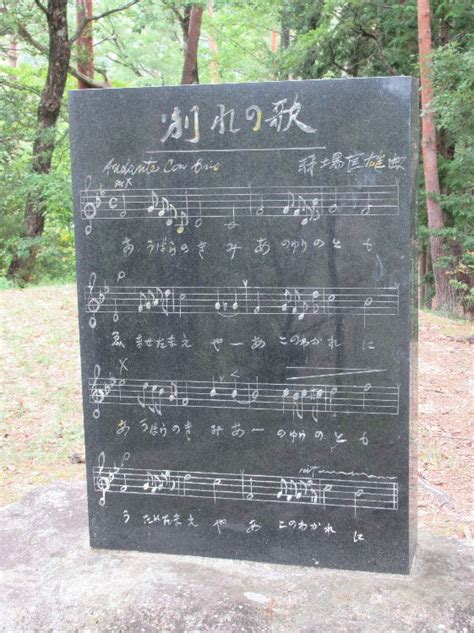 別れの歌
Andante Con brio
mf
あ うばらの き み あ のゆりの と も
ませたまえ や ー あ このわかれ に
あ うばらの き み あ ー のゆりの と も
rit
う たいたまえ や あ このわかれ に